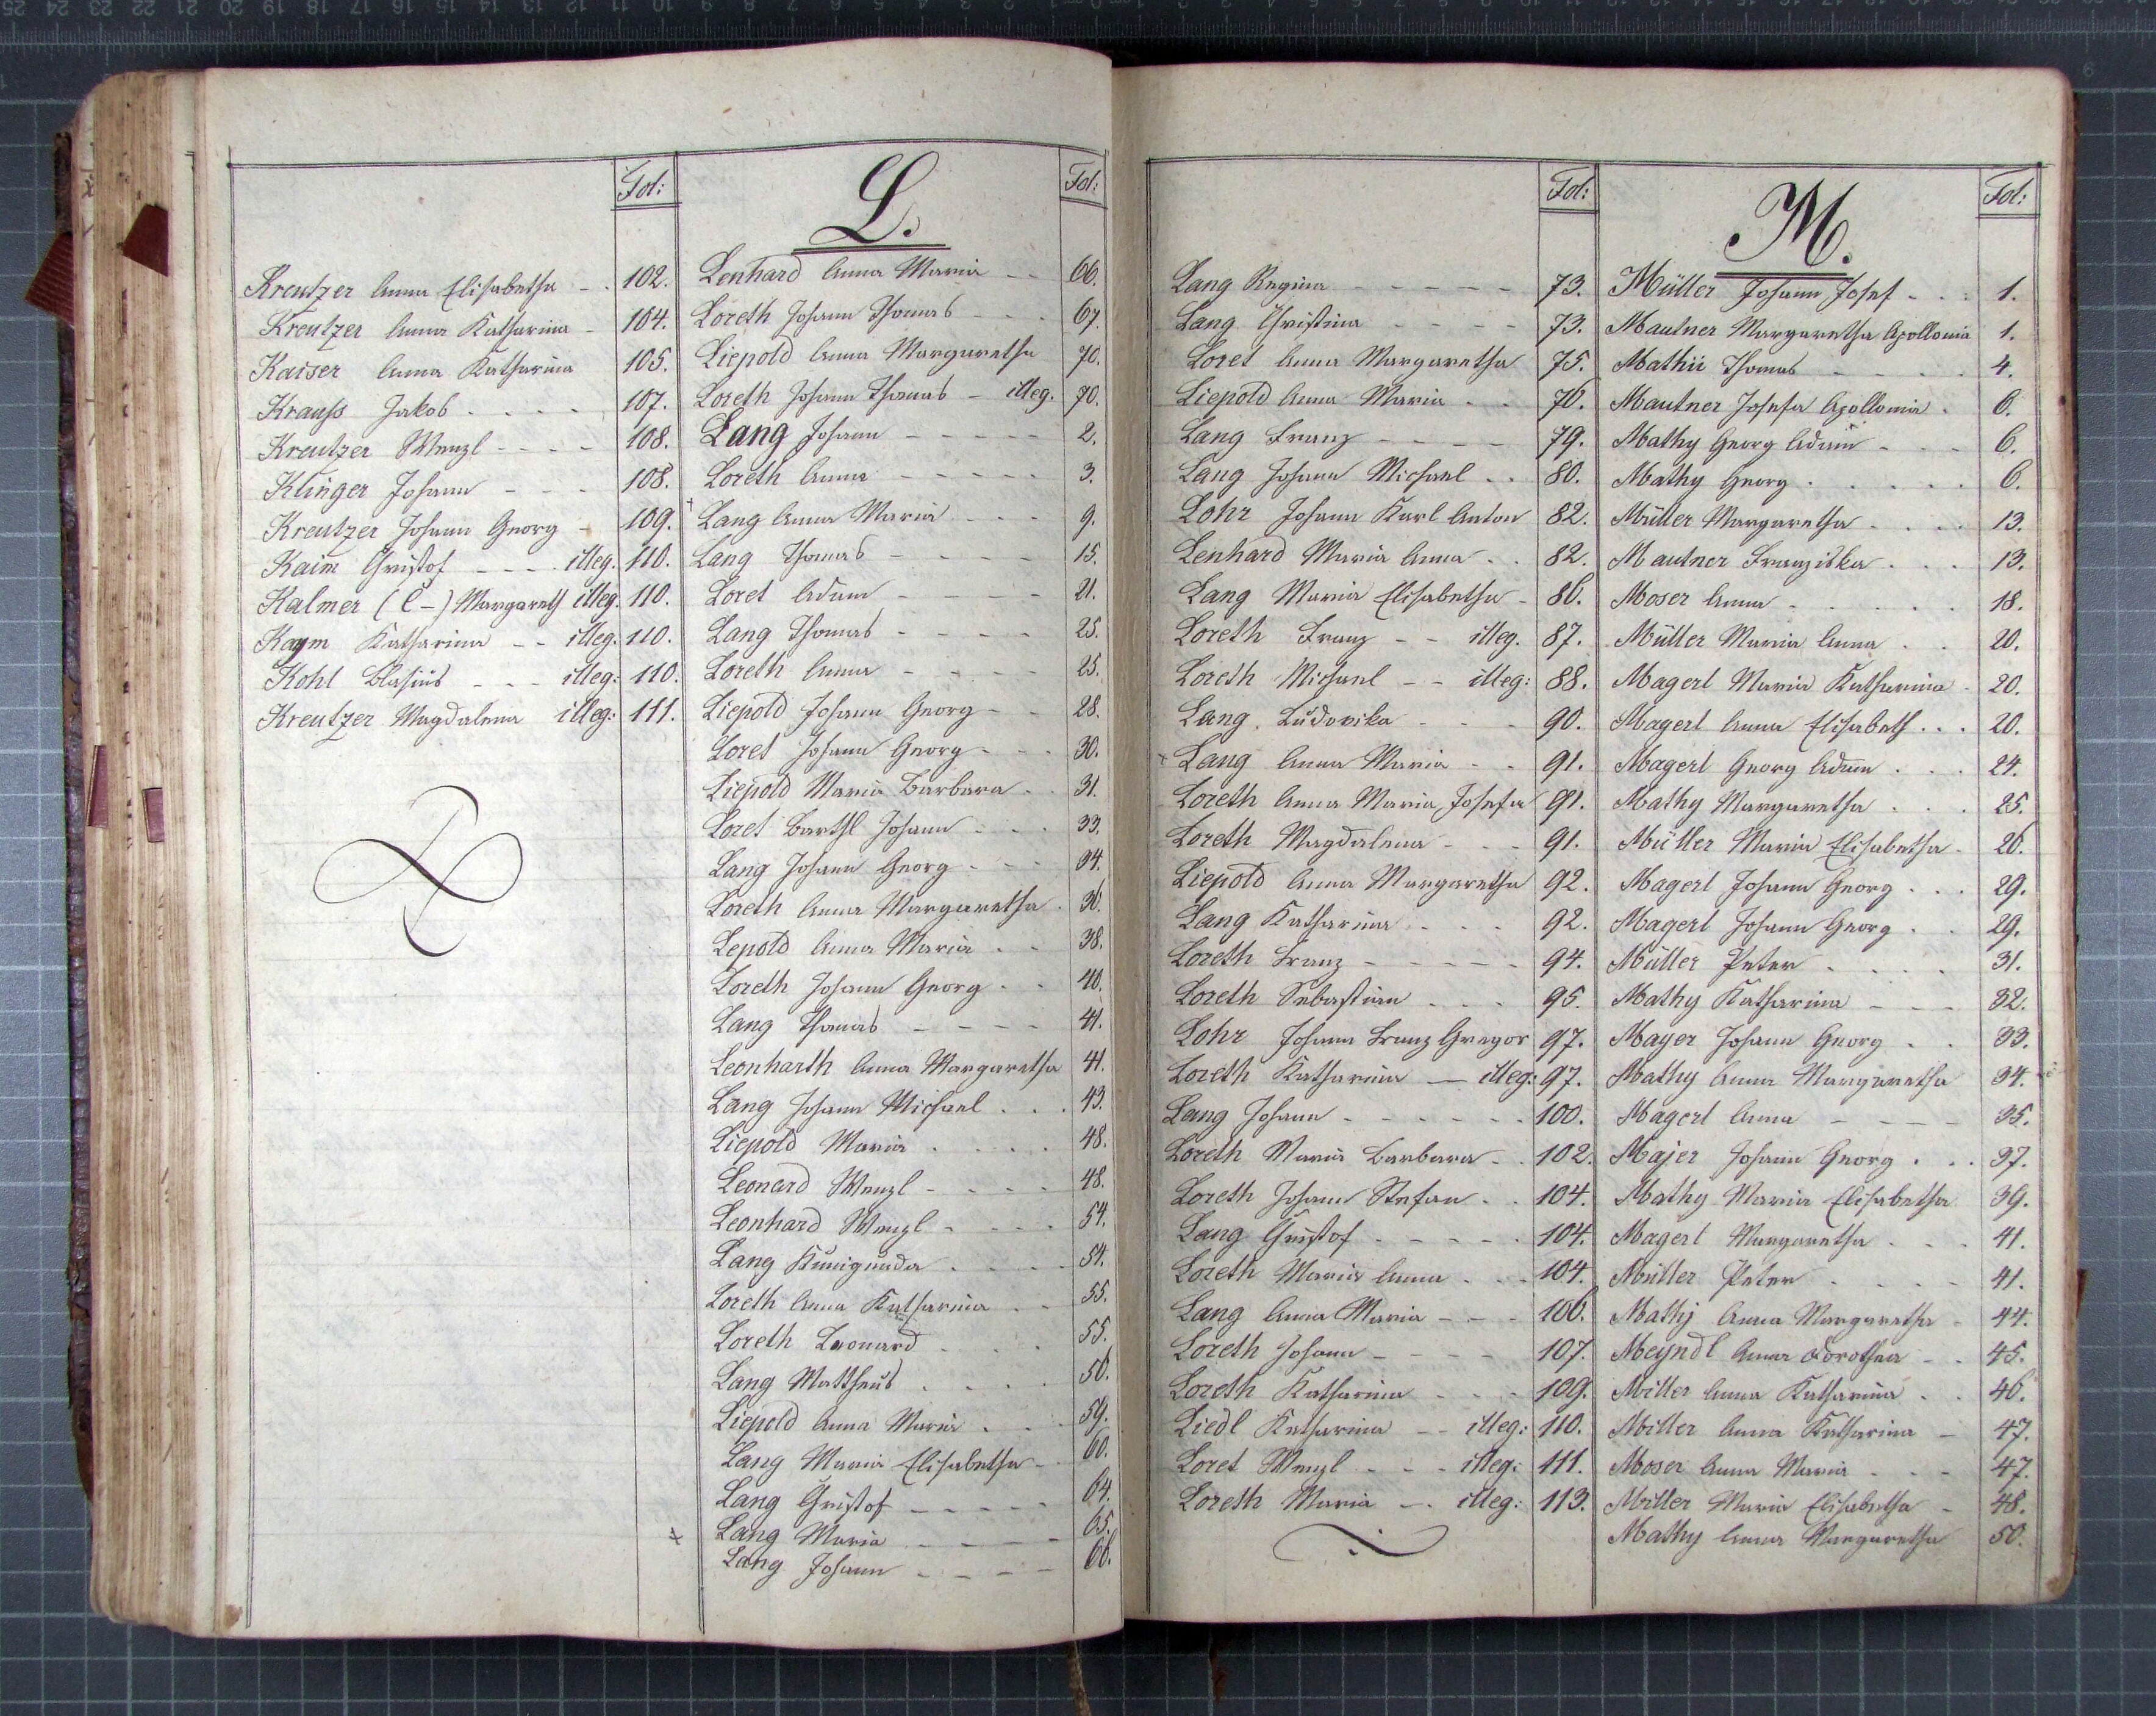 Fol:
Kreutzer Anna Elisabetha - . 102.
Kreutzer Anna Katharina - 104.
Kaiser Anna Katharina 105.
Krauss Jakob . . . . 107.
Kreutzer Wenzl - - - - 108.
Klinger Johann - - - 108.
Kreutzer Johann Georg - 109.
Kaim Christof - - - . illeg. 110.
Kalmer (C-) Margareth illeg. 110.
Kaym Katharina - - illeg. 110.
Kohl Blasius - - - illeg: 110.
Kreutzer Magdalena illeg: 111.
L.
Fol:
Lenhard Anna Maria - - 66.
Loreth Johann Thomas - - - 67.
Liepold Anna Margaretha 70.
Loreth Johann Thomas - illeg. 70.
Lang Johann - - - - - 2.
Loreth Anna - - - - - 3.
Lang Anna Maria - - - 9.
Lang Thomas - - - - 15.
Loret Adam - - - - 21.
Lang Thomas - - - - 25.
Loreth Anna - - - - 25.
Liepold Johann Georg - - 28.
Loret Johann Georg - - . 30.
Liepold Maria Barbara . . 31.
Loret Barthl Johann - . . 33.
Lang Johann Georg - - - 34.
Loreth Anna Margaretha . 36.
Lepold Anna Maria . . 38.
Loreth Johann Georg . . 40.
Lang Thomas - - - - 41.
Leonharth Anna Margaretha 41.
Lang Johann Michael . . . 43.
Liepold Maria . . . . 48.
Leonard Wenzl - . . . 48.
Leonhard Wenzl - . . . 54.
Lang Kunigunda . . . . 54.
Loreth Anna Katharina . . 55.
Loreth Leonard . . . 55.
Lang Mattheus . . . . 56.
Liepold Anna Maria . . . 59.
Lang Maria Elisabetha - . 60.
Lang Christof - - - - - 64.
+ Lang Maria - - - - 65.
Lang Johann - - - - 66.
Fol:
Lang Regina - - - - - 73.
Lang Christina - - - - 73.
Loret Anna Margaretha 75.
Liepold Anna Maria . . 76.
Lang Franz - - - - 79.
Lang Johann Michael . . 80.
Lohr Johann Karl Anton 82.
Lenhard Maria Anna . . 82.
Lang Maria Elisabetha - 86.
Loreth Franz - - illeg. 87.
Loreth Michael - - illeg: 88.
Lang Ludovika - - - 90.
+ Lang Anna Maria - - 91.
Loreth Anna Maria Josefa 91.
Loreth Magdalena - - - 91.
Liepold Anna Margaretha 92.
Lang Katharina . . - 92.
Loreth Franz - - - - - 94.
Loreth Sebastian . . . 95.
Lohr Johann Franz Gregor 97.
Loreth Katharina - illeg: 97.
Lang Johann - - - - - - 100.
Loreth Maria Barbara - . 102.
Loreth Johann Stefan . . 104.
Lang Christof - - - - . 104.
Loreth Maria Anna . . . 104.
Lang Anna Maria - - - 106.
Loreth Johann - - - - 107.
Loreth Katharina - - - 109.
Liedl Katharina - - illeg: 110.
Loret Wenzl - - - illeg: 111.
Loreth Maria - . illeg: 113.
M.
Fol:
Müller Johann Josef - . . 1.
Mautner Margaretha Apollonia 1.
Mathii Thomas - - - - . 4.
Mautner Josefa Apollonia . 6.
Mathy Georg Adam - - . 6.
Mathy Georg . . . . . 6.
Müller Margaretha . . . . 13.
Mautner Franziska . . . 13.
Moser Anna - . . . . 18.
Müller Maria Anna . . 20.
Magerl Maria Katharina - 20.
Magerl Anna Elisabeth . . . 20.
Magerl Georg Adam . . . 24.
Mathy Margaretha . . . 25.
Müller Maria Elisabetha - 26.
Magerl Johann Georg . . . 29.
Magerl Johann Georg . . 29.
Müller Peter . . . . 31.
Mathy Katharina - - - 32.
Mayer Johann Georg . . 33.
Mathy Anna Margaretha 34.
Magerl Anna - - - - 35.
Majer Johann Georg . . . 37.
Mathy Maria Elisabetha 39.
Magerl Margaretha . . . 41.
Müller Peter . . . . - 41.
Mathj Anna Margaretha - 44.
Meyndl Anna Dorothea - . 45.
Miller Anna Katharina . . 46.
Miller Anna Katharina - 47.
Moser Anna Maria . . - 47.
Miller Maria Elisabetha - 48.
Mathy Anna Margaretha 50.